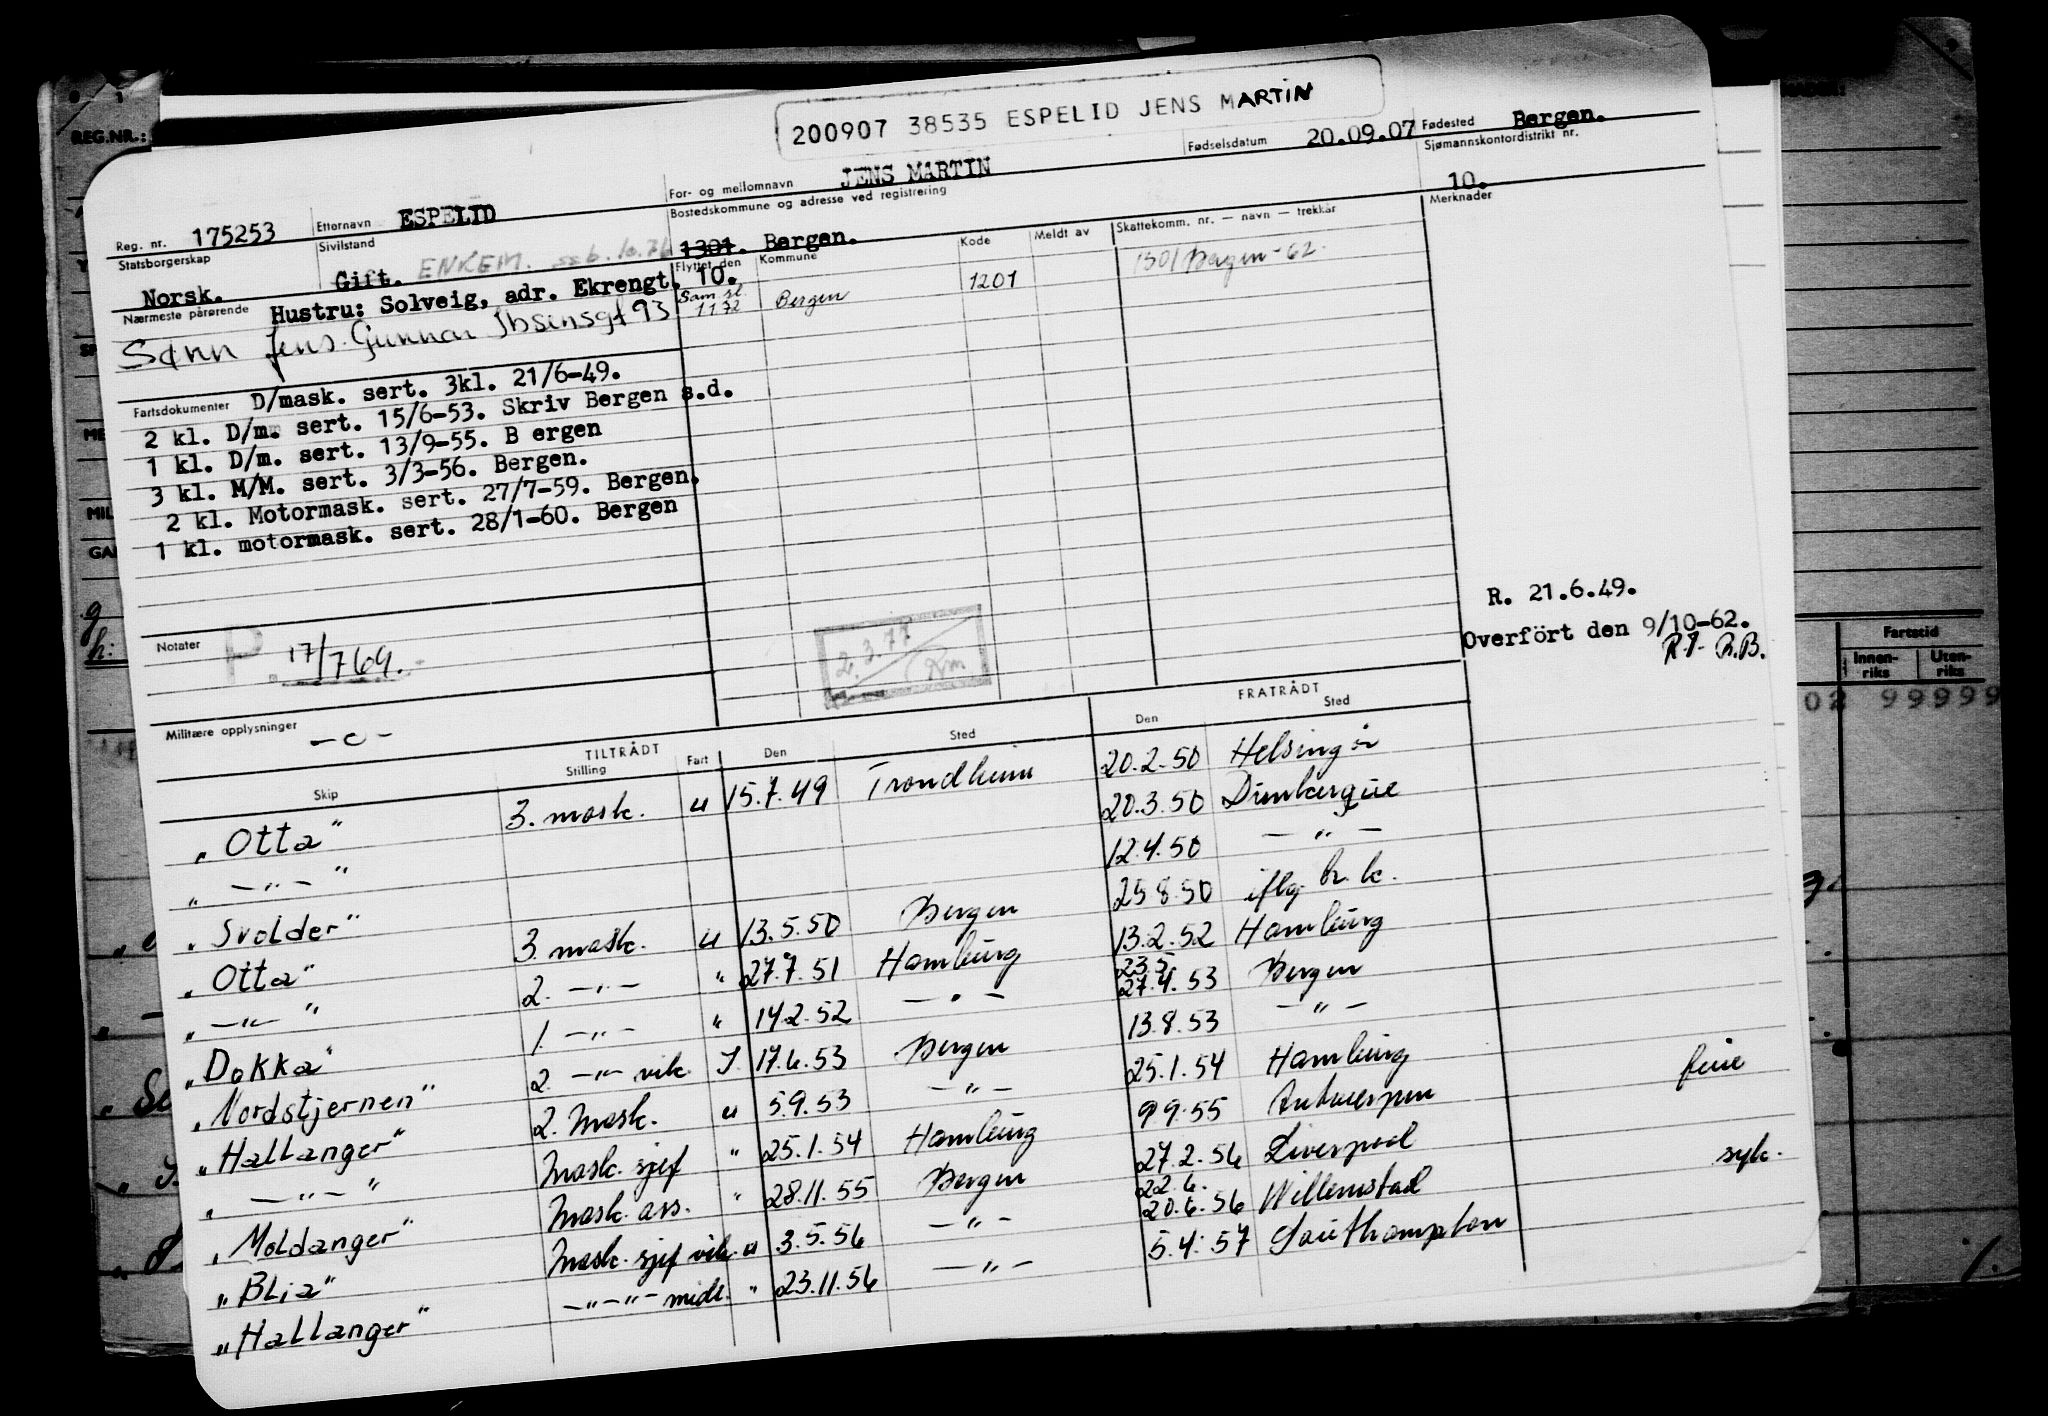 200907 38535 ESPELID JENS MARTIN
REG.NR.:
Reg. nr. 175253 Etternavn ESPELID For- og mellomnavn JENS MARTIN Fødselsdatum 20.09.07 Fødested Bergen.
Statsborgerskap Norsk. Sivilstand Gift. ENKEM. Bostedskommune og adresse ved registrering 1301. Bergen. Sjømannskontordistrikt nr. 10.
Nærmeste pårørende Hustru: Solveig, adr. Ekrengt. 10.
Sønn Jens Gunnar Ibsensgt 93
Flyttet den Kommune Kode Meldt av Skattekomm. nr. — navn — trekkår Merknader
Sam. sl. 1172 Bergen 1201 1301 Bergen - 62.
Fartsdokumenter D/mask. sert. 3kl. 21/6-49.
2 kl. D/m. sert. 15/6-53. Skriv Bergen s.d.
1 kl. D/m. sert. 13/9-55. B ergen
3 kl. M/M. sert. 3/3-56. Bergen.
2 kl. Motormask. sert. 27/7-59. Bergen.
1 kl. motormask. sert. 28/1-60. Bergen
R. 21.6.49.
Overfört den 9/10-62.
R.B.
Notater P. 17/769.
2.3.77 Km
Militære opplysninger -o-
TILTRÅDT FRATRÅDT
Skip Stilling Fart Den Sted Den Sted
„Otta" 3. mask. u 15.7.49 Trondheim 20.2.50 Helsingør
„—"—" 20.3.50 Dunkerque
„Svolder" 12.4.50 —"—
„Otta" 3. mask. u 13.5.50 Bergen 25.8.50 iflg. br. k.
„—"—" 2. —"— " 27.7.51 Hamburg 13.2.52 Hamburg
„Dokka" 1 —"— " 14.2.52 —"— 23.5. 27.4.53 Bergen
„Nordstjernen" 2. —"— vik. I. 17.6.53 Bergen 13.8.53 —"—
„Hallanger" 2. mask. u 5.9.53 —"— 25.1.54 Hamburg
„—"—" Mask. sjef " 25.1.54 Hamburg 9.9.55 Antwerpen ferie
„Moldanger" Mask. ass. " 28.11.55 Bergen 27.2.56 Liverpool
„Blia" Mask. sjef vik. u 3.5.56 —"— 22.6. 20.6.56 Willemstad syk.
„Hallanger" —"—"— midl. " 23.11.56 —"— 5.4.57 Southampton
Fartstid
Innen-riks Uten-riks
02 99999